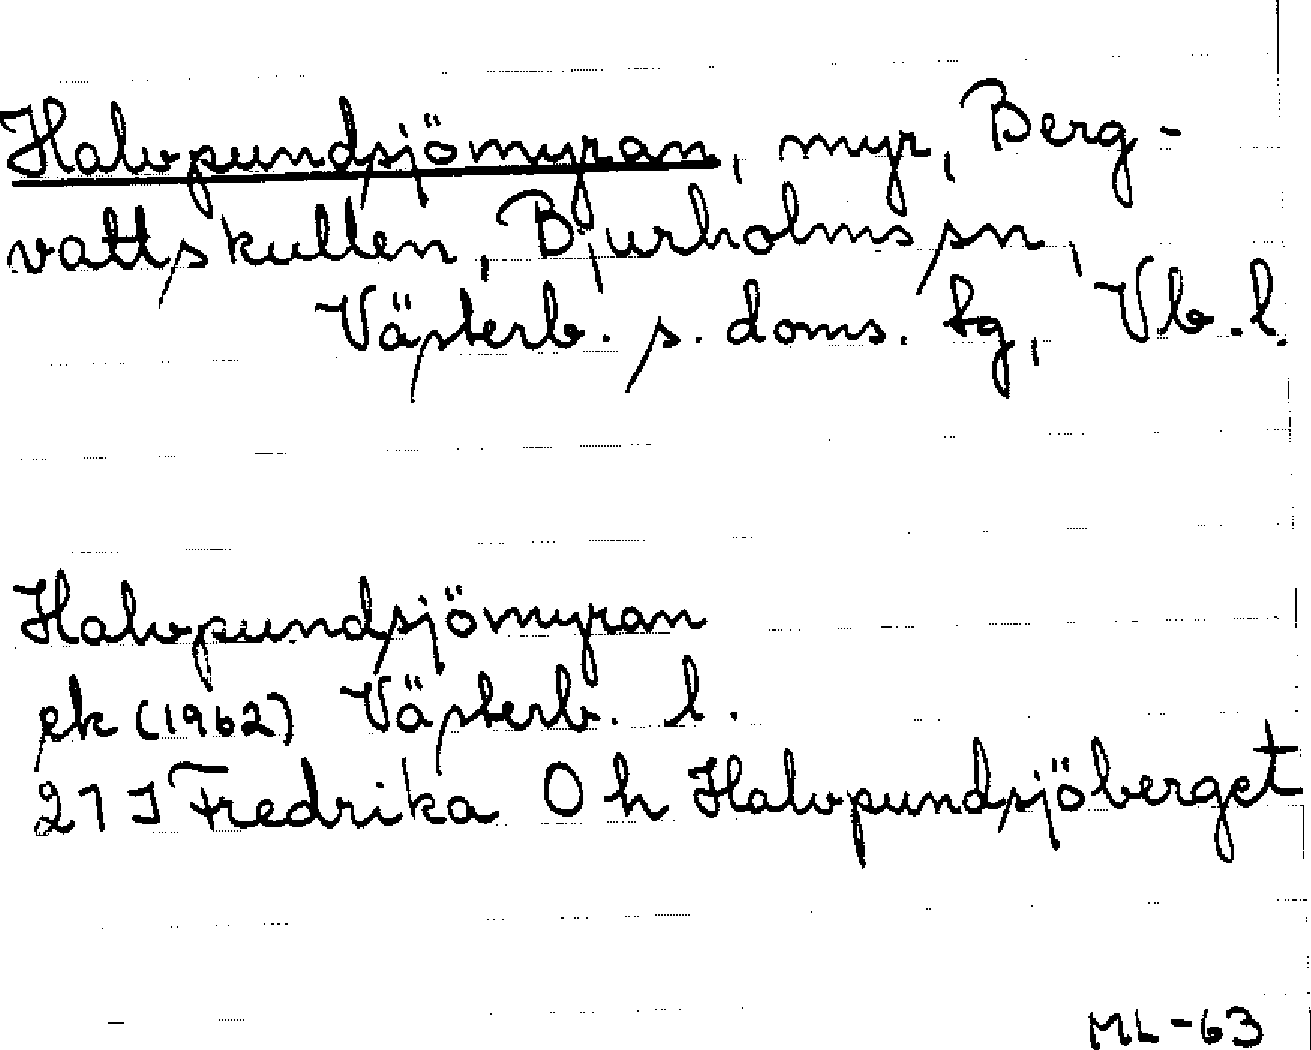 Halvpundsjömyran, myr, Berg-
vattskullen, Bjurholms sn,
Västerb. s. doms. tg, Vb. l.
Halvpundsjömyran
ek (1962) Västerb. l.
21 J Fredrika O h Halvpundsjöberget
ML-63